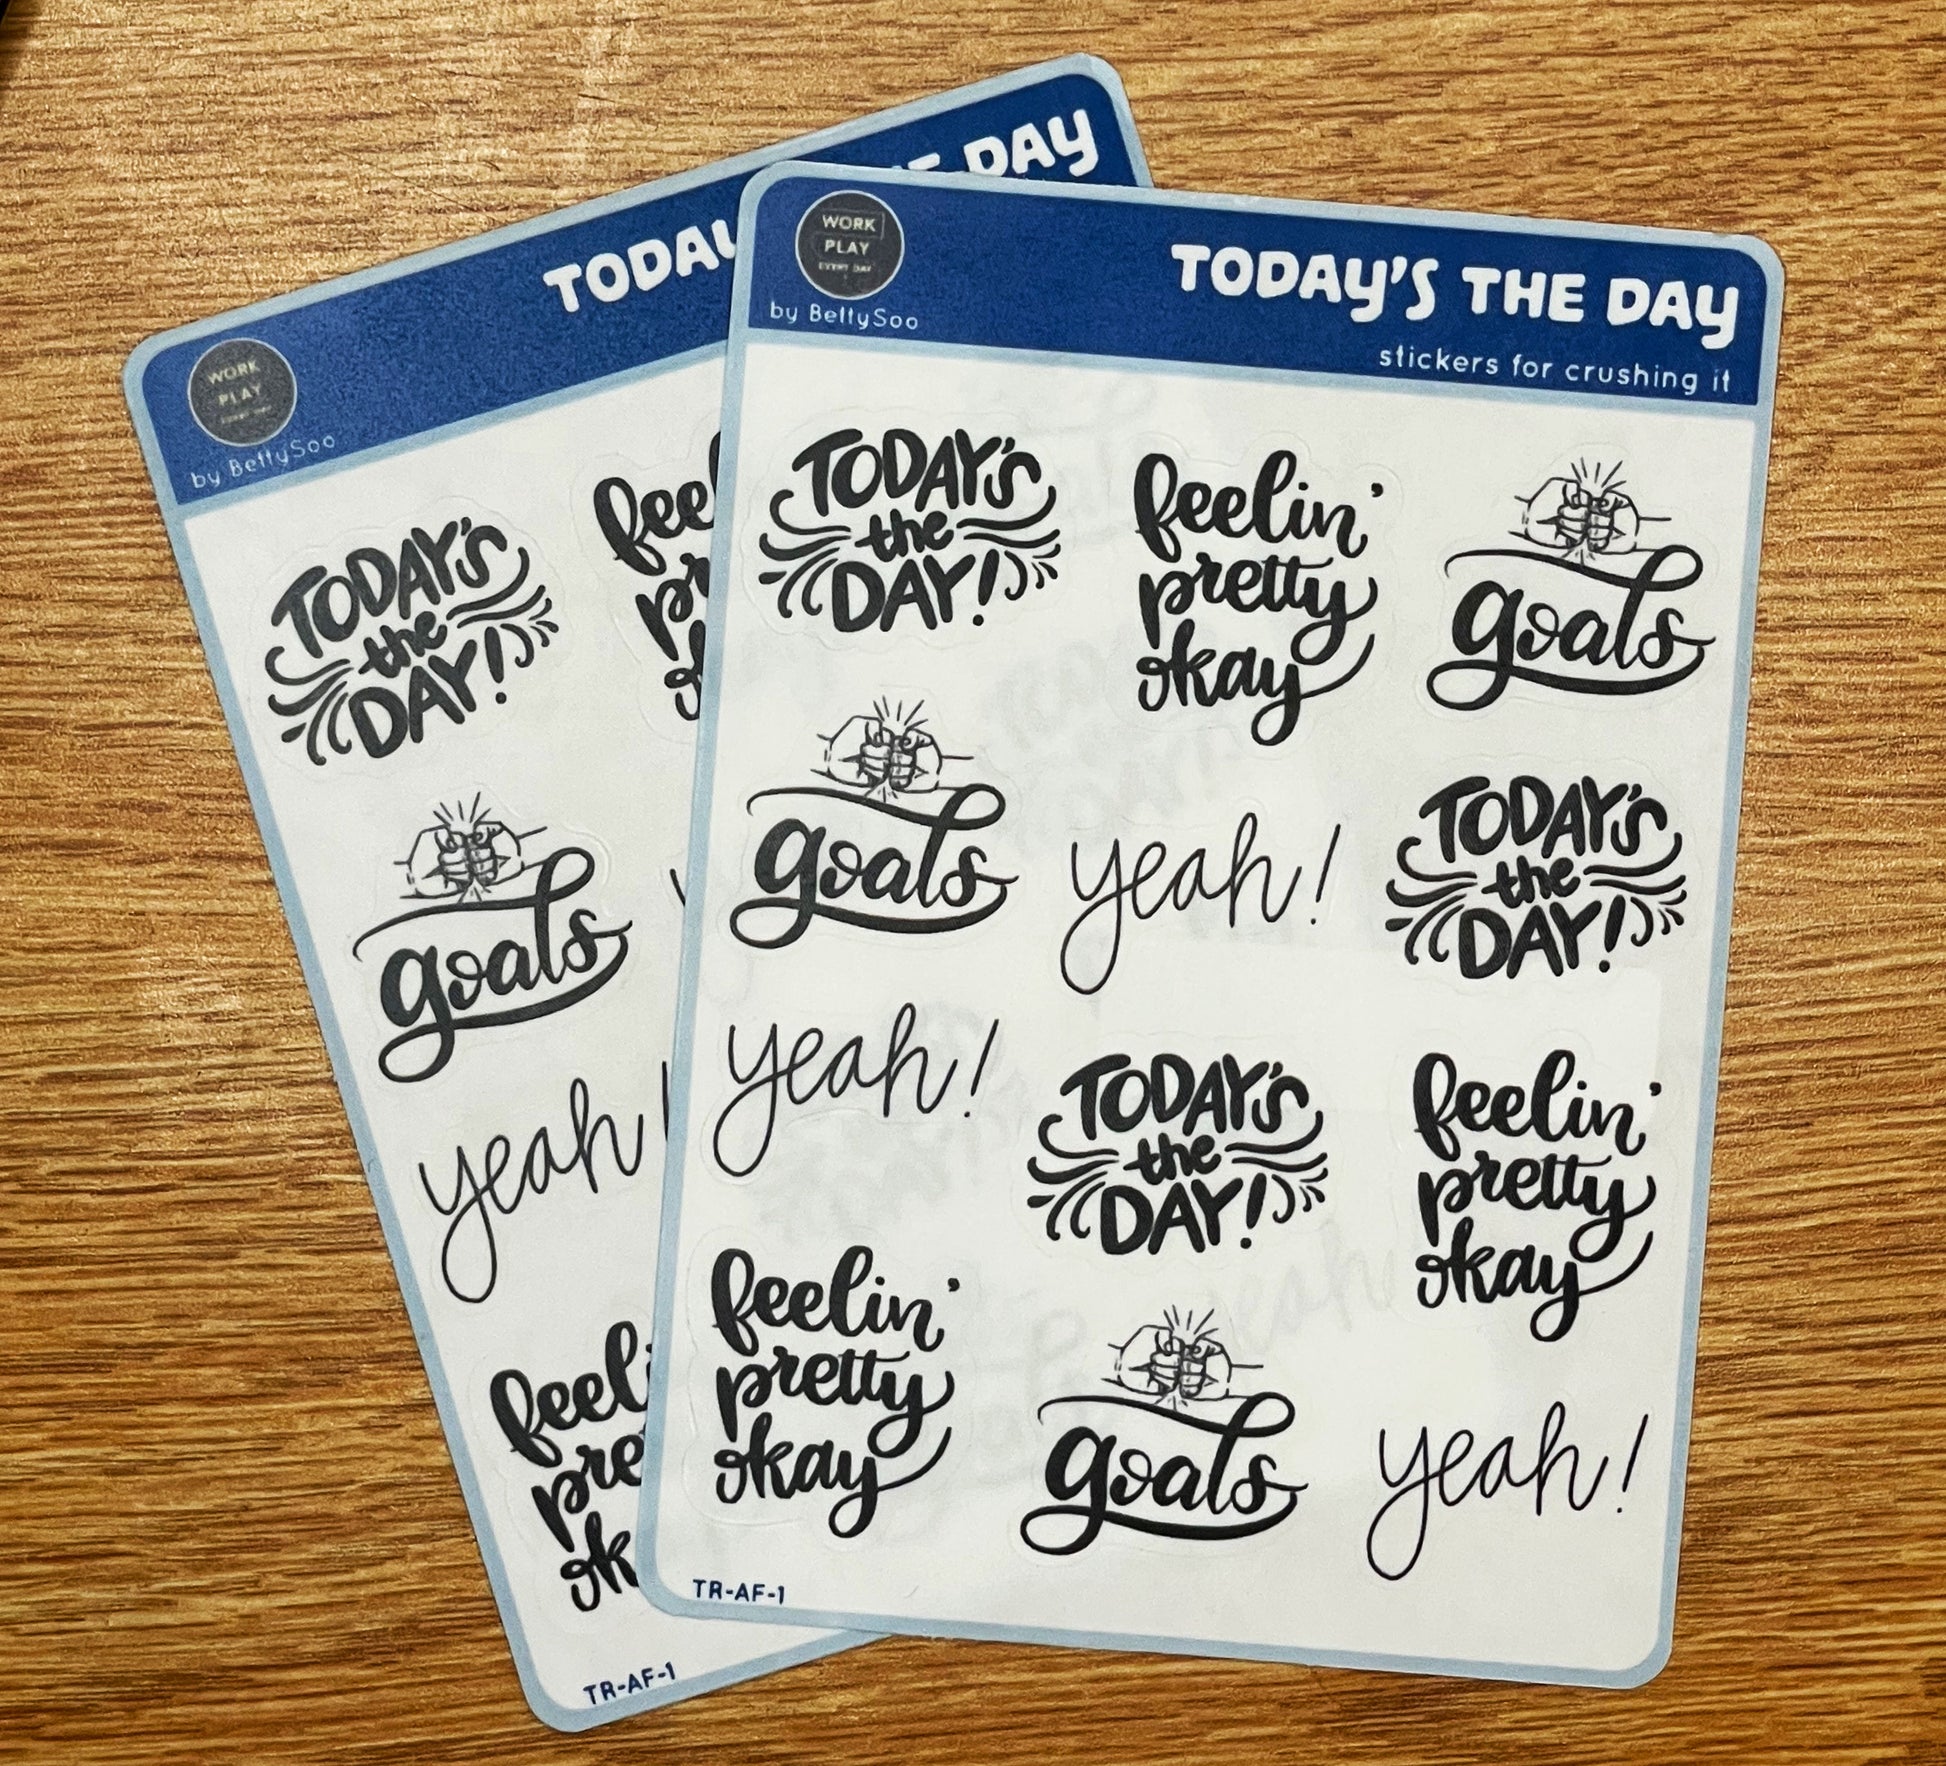 TODAY
THE DAY
WORK
PLAY
EVERY DAY
by BettySoo
TODAY'S
the
DAY!
feel
pr
ok
goals
yeah!
feeli
pre
ok
TR-AF-1
WORK
PLAY
EVERY DAY
by BettySoo
TODAY'S THE DAY
stickers for crushing it
TODAY'S
the
DAY!
feelin'
pretty
okay
goals
goals
yeah!
TODAY'S
the
DAY!
yeah!
TODAY'S
the
DAY!
feelin'
pretty
okay
feelin'
pretty
okay
goals
yeah!
TR-AF-1